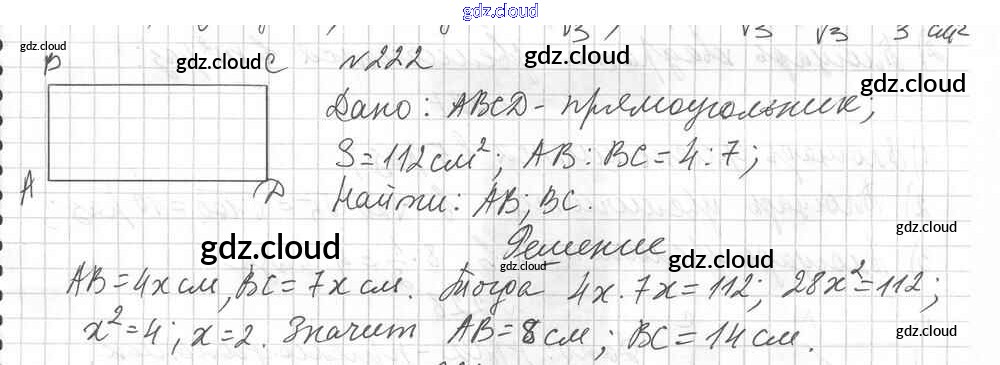 gdz.cloud
gdz.cloud
B gdz.cloud C №222
gdz.cloud
gdz.cloud
Дано: ABCD - прямоугольник;
gdz.cloud
S = 112 см²; AB : BC = 4 : 7;
A D Найти: AB; BC.
gdz.cloud
gdz.cloud
Решение
gdz.cloud
gdz.cloud
AB = 4x см, BC = 7x см. Тогда 4x · 7x = 112; 28x² = 112;
gdz.cloud
x² = 4; x = 2. Значит AB = 8 см; BC = 14 см.
gdz.cloud
gdz.cloud